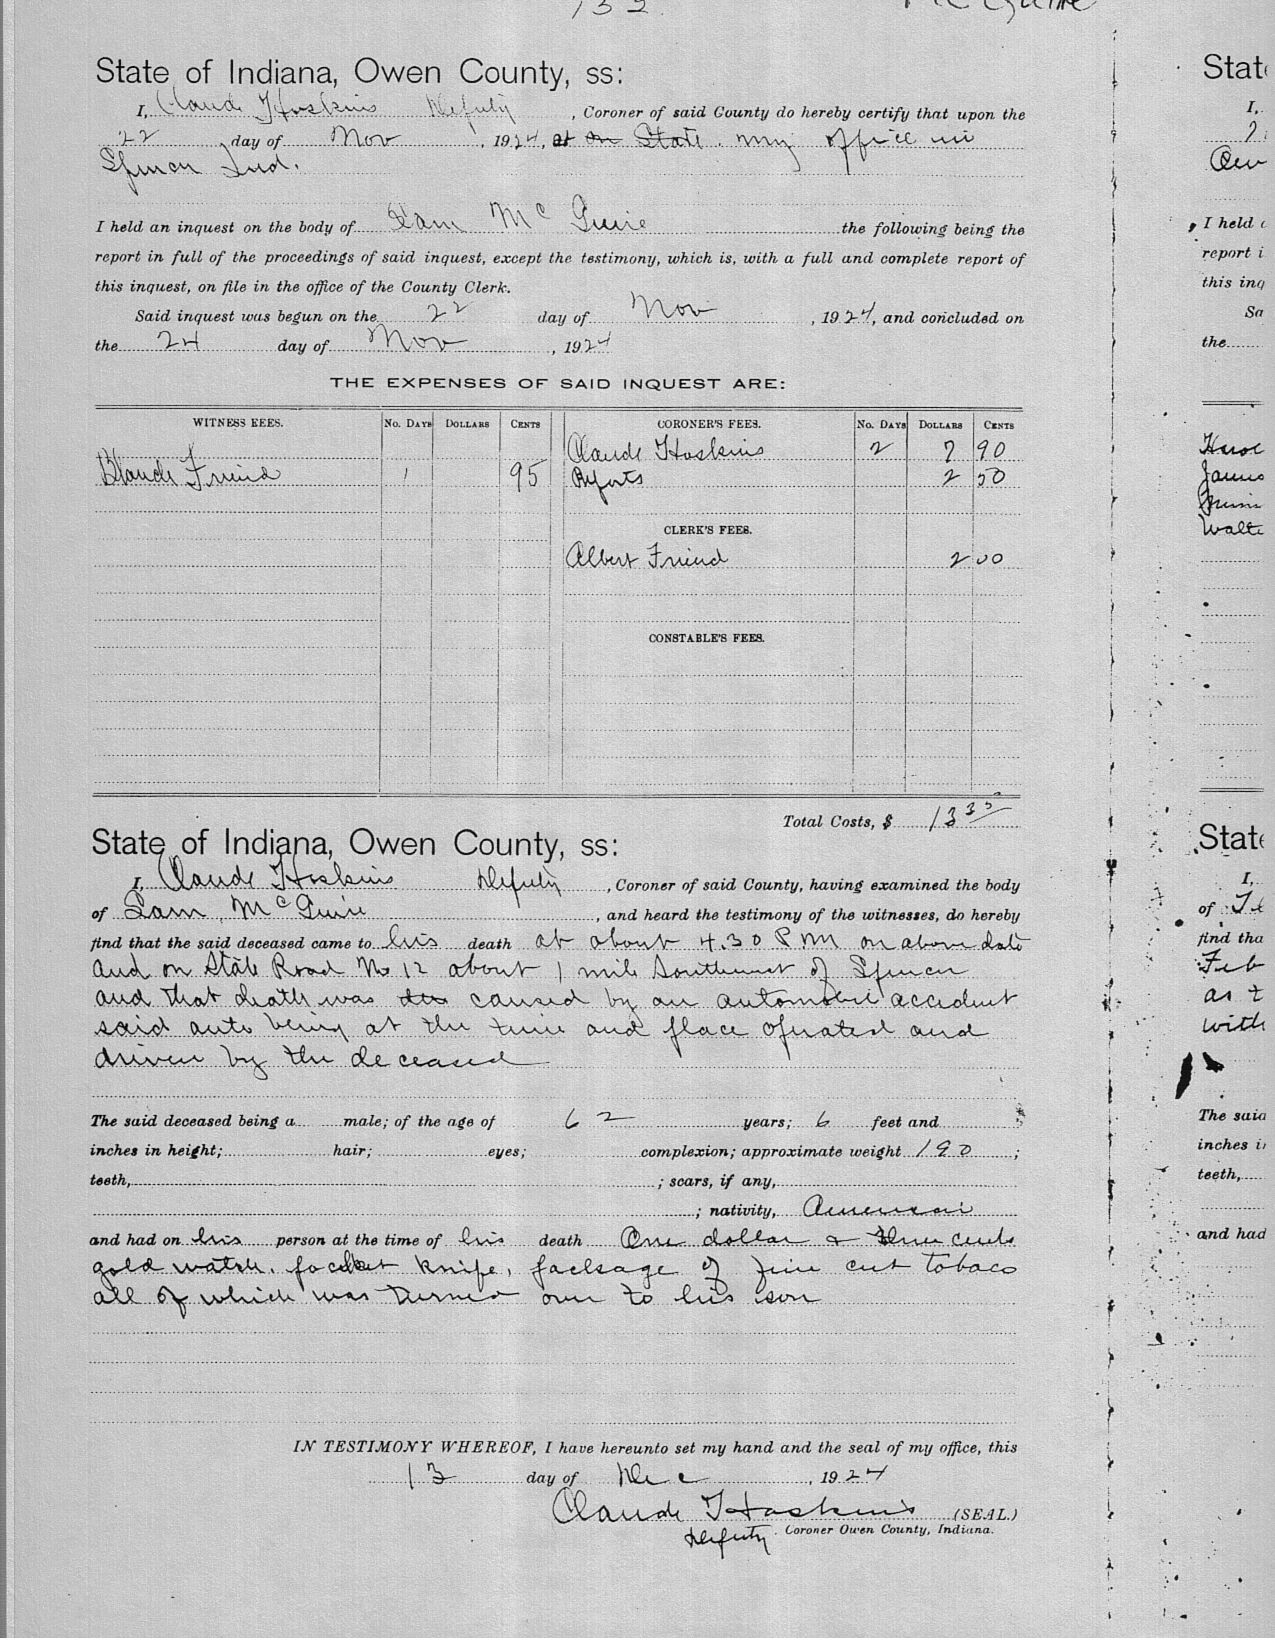 132
McGuire
State of Indiana, Owen County, ss:
I, Claude Hoskins Deputy, Coroner of said County do hereby certify that upon the
22 day of Nov, 1924, at on State. my office in
Spencer Ind.
I held an inquest on the body of Sam McGuire the following being the
report in full of the proceedings of said inquest, except the testimony, which is, with a full and complete report of
this inquest, on file in the office of the County Clerk.
Said inquest was begun on the 22 day of Nov, 1924, and concluded on
the 24 day of Nov, 1924
THE EXPENSES OF SAID INQUEST ARE:
WITNESS FEES. No. Days Dollars Cents CORONER'S FEES. No. Days Dollars Cents
Claude Hoskins 2 7 90
Blaude Friend 1 95 Reports 2 50
CLERK'S FEES.
Albert Friend 2 00
CONSTABLE'S FEES.
Total Costs, $ 13 35
State of Indiana, Owen County, ss:
I, Claude Hoskins Deputy, Coroner of said County, having examined the body
of Sam McGuire, and heard the testimony of the witnesses, do hereby
find that the said deceased came to his death at about 4.30 PM on above date
and on State Road No 12 about 1 mile Southwest of Spencer
and that death was due caused by an automobile accident
said auto being at the time and place operated and
driven by the deceased
The said deceased being a male; of the age of 62 years; 6 feet and
inches in height; hair; eyes; complexion; approximate weight 190;
teeth, ; scars, if any,
; nativity, American
and had on his person at the time of his death One dollar & three cents
gold watch, pocket knife, packsage of fine cut tobaco
all of which was turned over to his son
IN TESTIMONY WHEREOF, I have hereunto set my hand and the seal of my office, this
13 day of Dec, 1924
Claude Hoskins (SEAL.)
Deputy Coroner Owen County, Indiana.
State
I,
I held
report i
this inq
Sa
the
Walte
State
I,
of
find tha
Feb
as t
with
The said
inches i
teeth,
and had